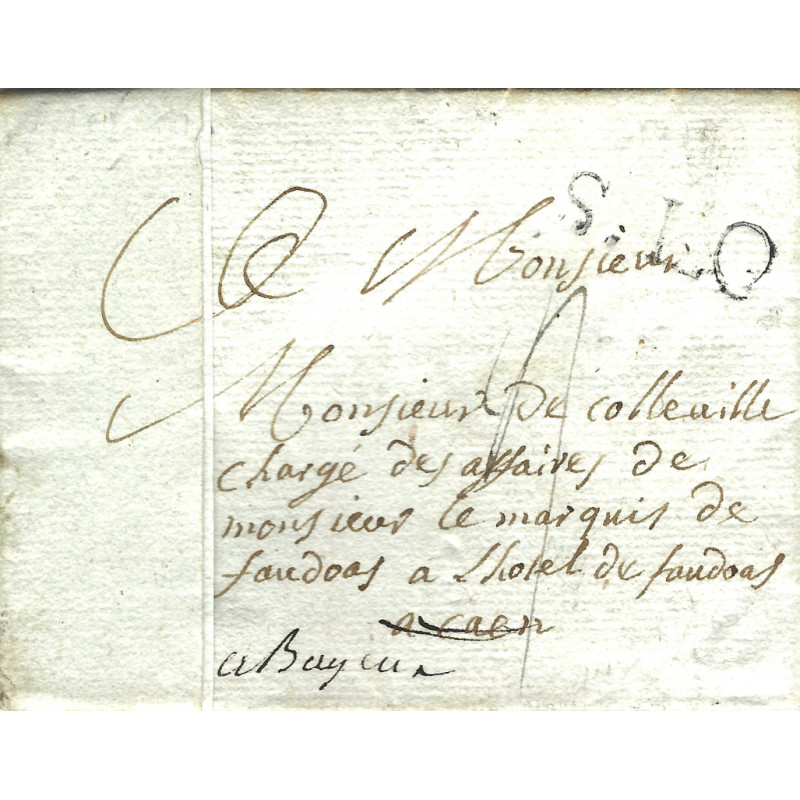 S. LO
A Monsieur
Monsieur de colleville
chargé des affaires de
monsieur le marquis de
faudoas a Lhotel de faudoas
a caen
a Bayeux